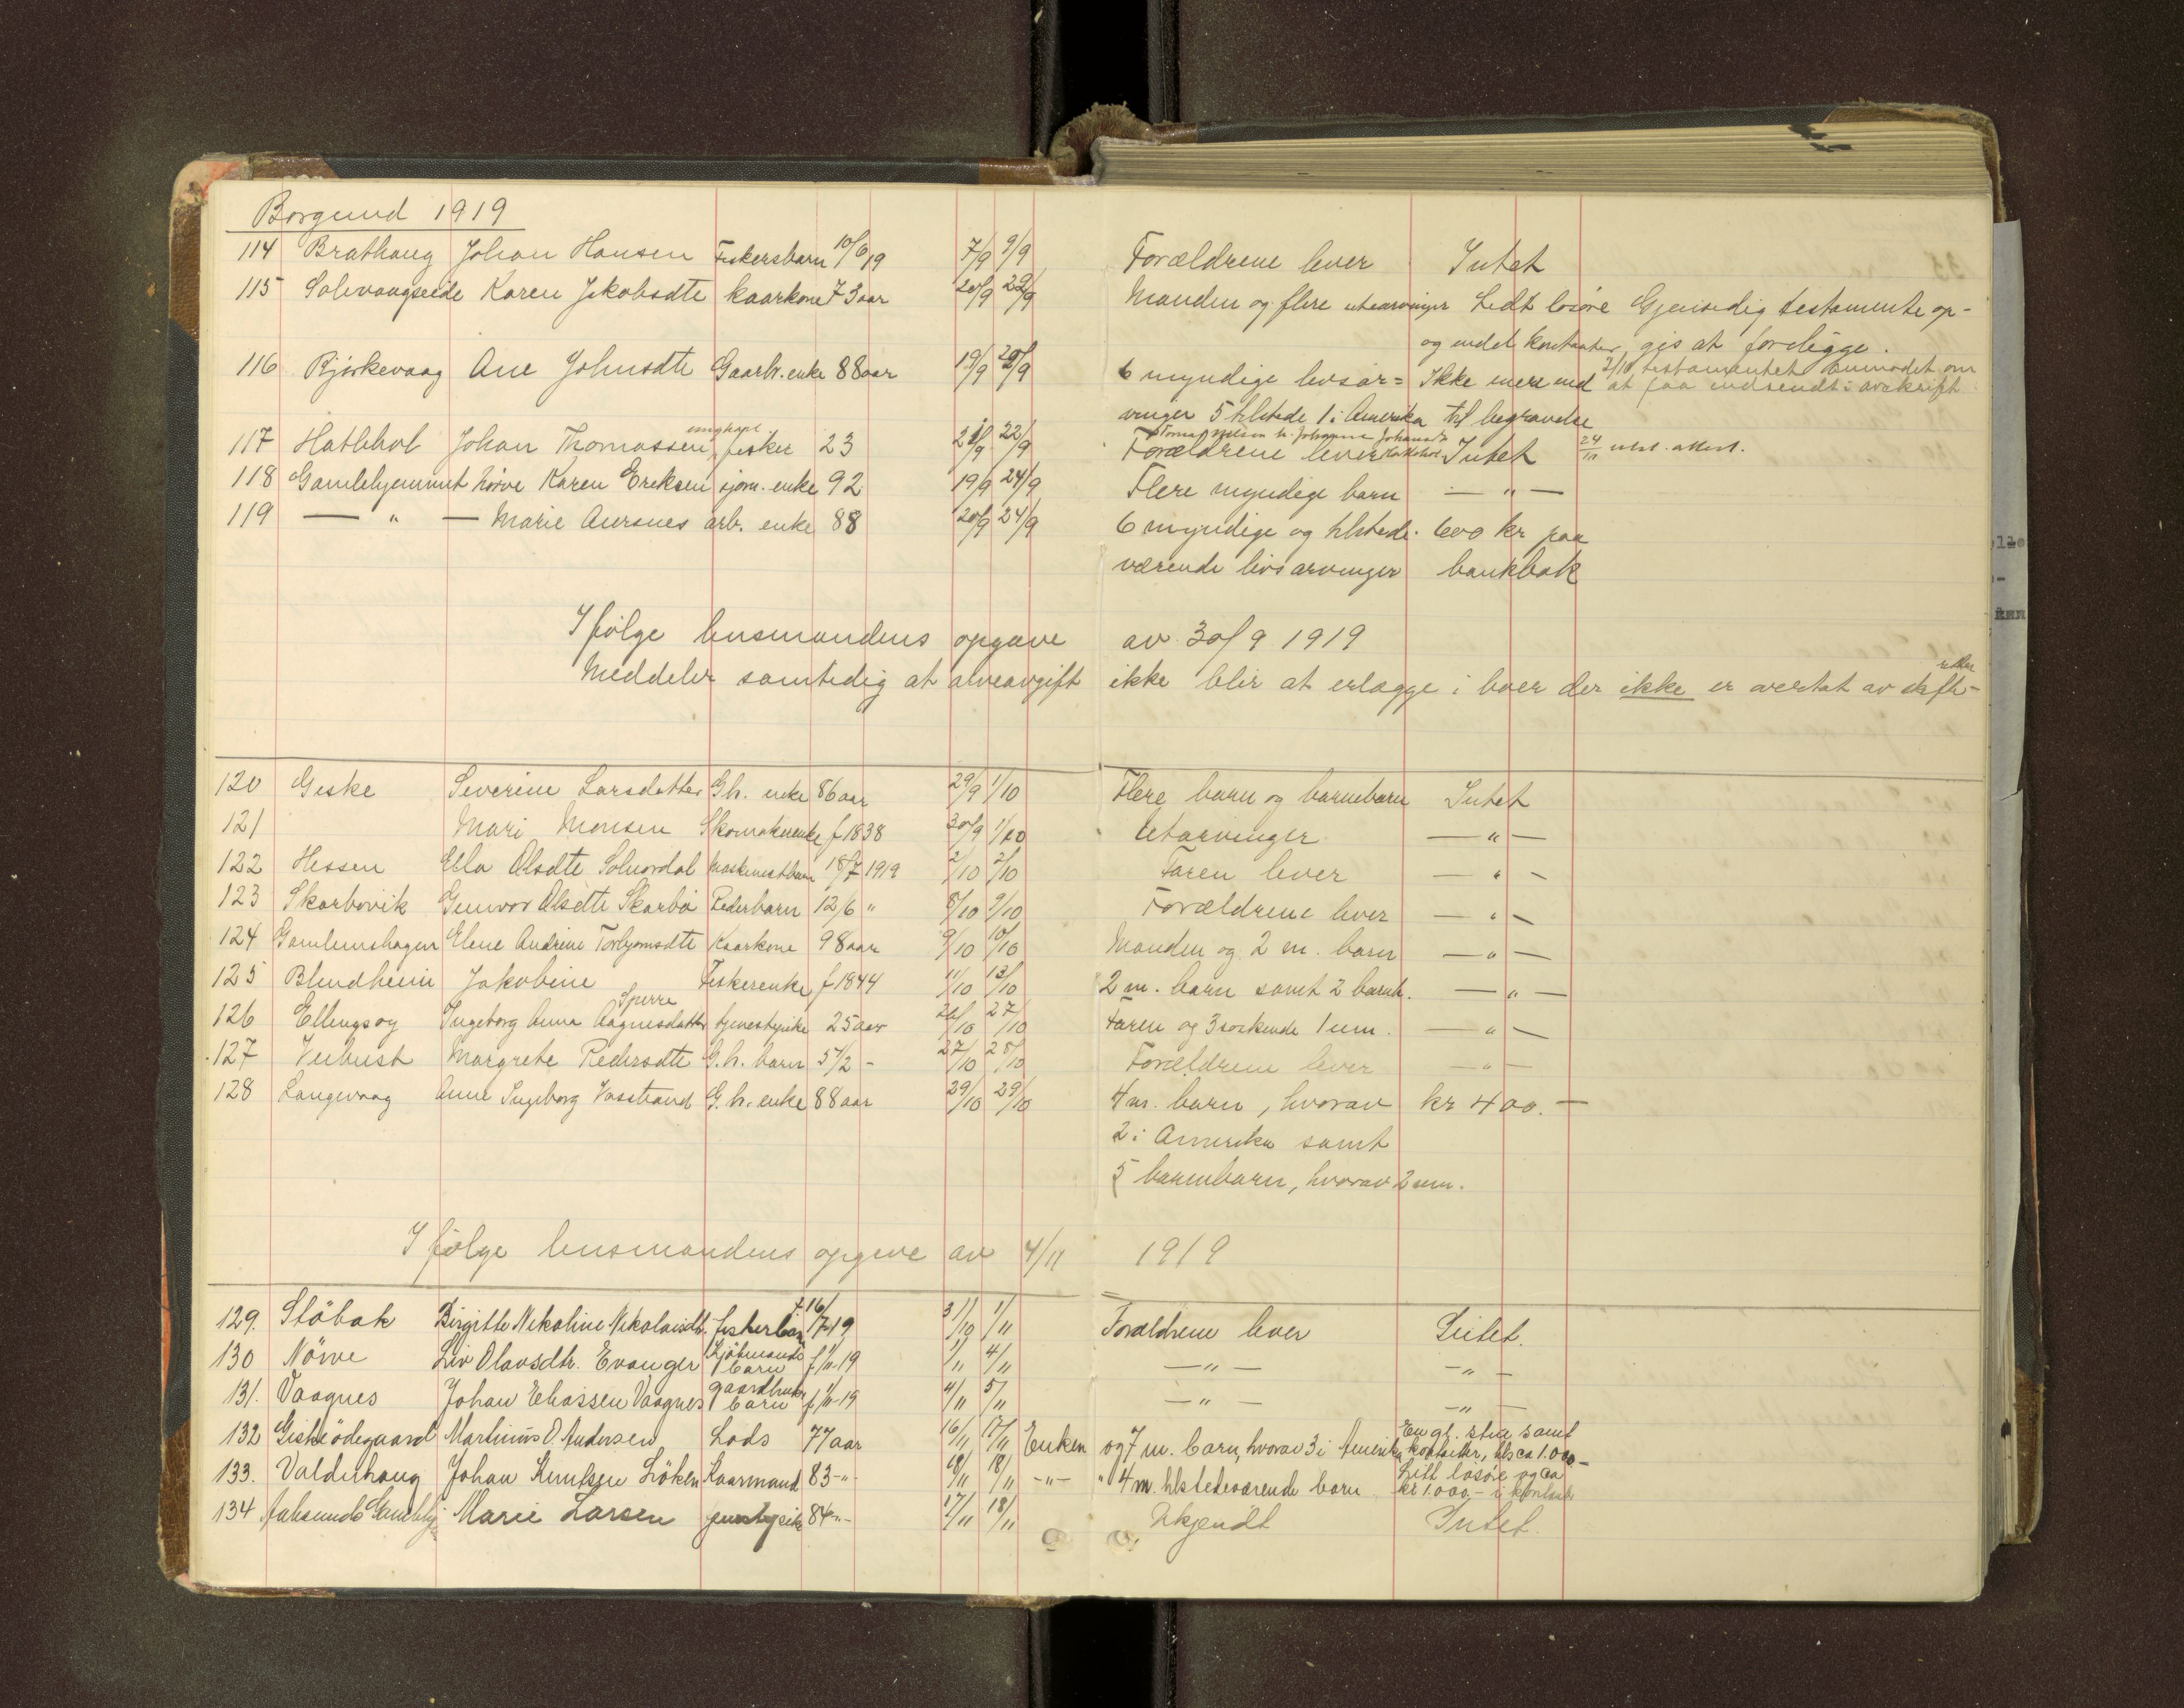 Borgund 1919
114 Brathaug Johan Hansen Fiskersbarn 10/6 19 7/9 9/9 Forældrene lever Intet
115 Solevaagseide Karen Jakobsdtr kaarkone 73 aar 20/9 22/9 Manden og flere utearvinger Lidt løsøre Gjensidig testamente op-
og endel kontanter gis at foreligge.
116 Bjørkevaag Ane Johnsdtr Gaarbr. enke 88 aar 19/9 20/9 6 myndige livsar= Ikke mere end 2/10 testamentet anmodet om at faa indsendt i avskrift
vinger 5 tilstede 1 i Amerika til begravelse
117 Hatlehol Johan Thomassen ungkarl fisker 23 21/9 22/9 Forældrene lever Intet 24/11
118 Gamlehjemmet Nørve Karen Eriksen sjøm. enke 92 19/9 24/9 Flere myndige barn — " —
119 — " — Marie Aursnes arb. enke 88 20/9 24/9 6 myndige og tilstede- 600 kr paa
værende livsarvinger bankbok
Ifølge lensmandens opgave av 30/9 1919
Meddeler samtidig at arveavgift ikke blir at erlægge i boer der ikke er overtat av skifte-
retten
120 Giske Severine Larsdatter Gb. enke 86 aar 29/9 1/10 Flere barn og barnebarn Intet
121 Mari Monsen Skomakerenke f 1838 30/9 1/10 Utarvinger — " —
122 Hessen Ella Olsdtr Solnørdal Maskinistbarn 18/7 1919 2/10 2/10 Faren lever — " —
123 Skarbøvik Gunvor Olsdtr Skarbø Rederbarn 12/6 " 8/10 9/10 Forældrene lever — " —
124 Gamlemshagen Elene Andrine Torbjørnsdtr Kaarkone 98 aar 9/10 10/10 Manden og 2 m. barn — " —
125 Blindheim Jakobine Fiskerenke f 1844 11/10 13/10 2 m. barn samt 2 barneb. — " —
126 Ellingsøy Ingeborg Anna Aagnesdatter Sperre tjenestepike 25 aar 26/10 27/10 Faren og 3 søskende 1 um. — " —
127 Vebust Margrete Pedersdtr G.b. barn 5 1/2 - 27/10 28/10 Forældrene lever — " —
128 Langevaag Anne Ingeborg Vasstrand G.b. enke 88 aar 29/10 29/10 4 m. barn, hvorav kr 400.—
2 i Amerika samt
5 barnebarn, hvorav 2 um.
Ifølge lensmandens opgave av 4/11 1919
129. Støbak Birgitte Nikoline Nikolaisdtr. fiskerbarn f 16/7-19 31/10 1/11 Forældrene lever Intet.
130 Nörve Liv Olavsdtr. Evanger Kjøbmands barn f 1/11-19 1/11 4/11 — " — — " —
131. Vaagnes Johan Eliassen Vaagnes gaardbruker barn f 1/11-19 4/11 5/11 — " — — " —
132 Giskeödegaard Martinus O. Andersen Lods 77 aar 16/11 17/11 Enken og 7 m. barn, hvorav 3 i Amerika En gl. stue samt kontanter, tils ca 1.000-
133. Valderhaug Johan Knutsen Löken Kaarmand 83 -"- 18/11 18/11 -"- " 4 m. tilstedeværende barn Litt løsøre og ca kr 1.000.- i kontant
134 Aalesunds Gamlehj. Marie Larsen 84 -"- 17/11 18/11 Ukjendt Intet.